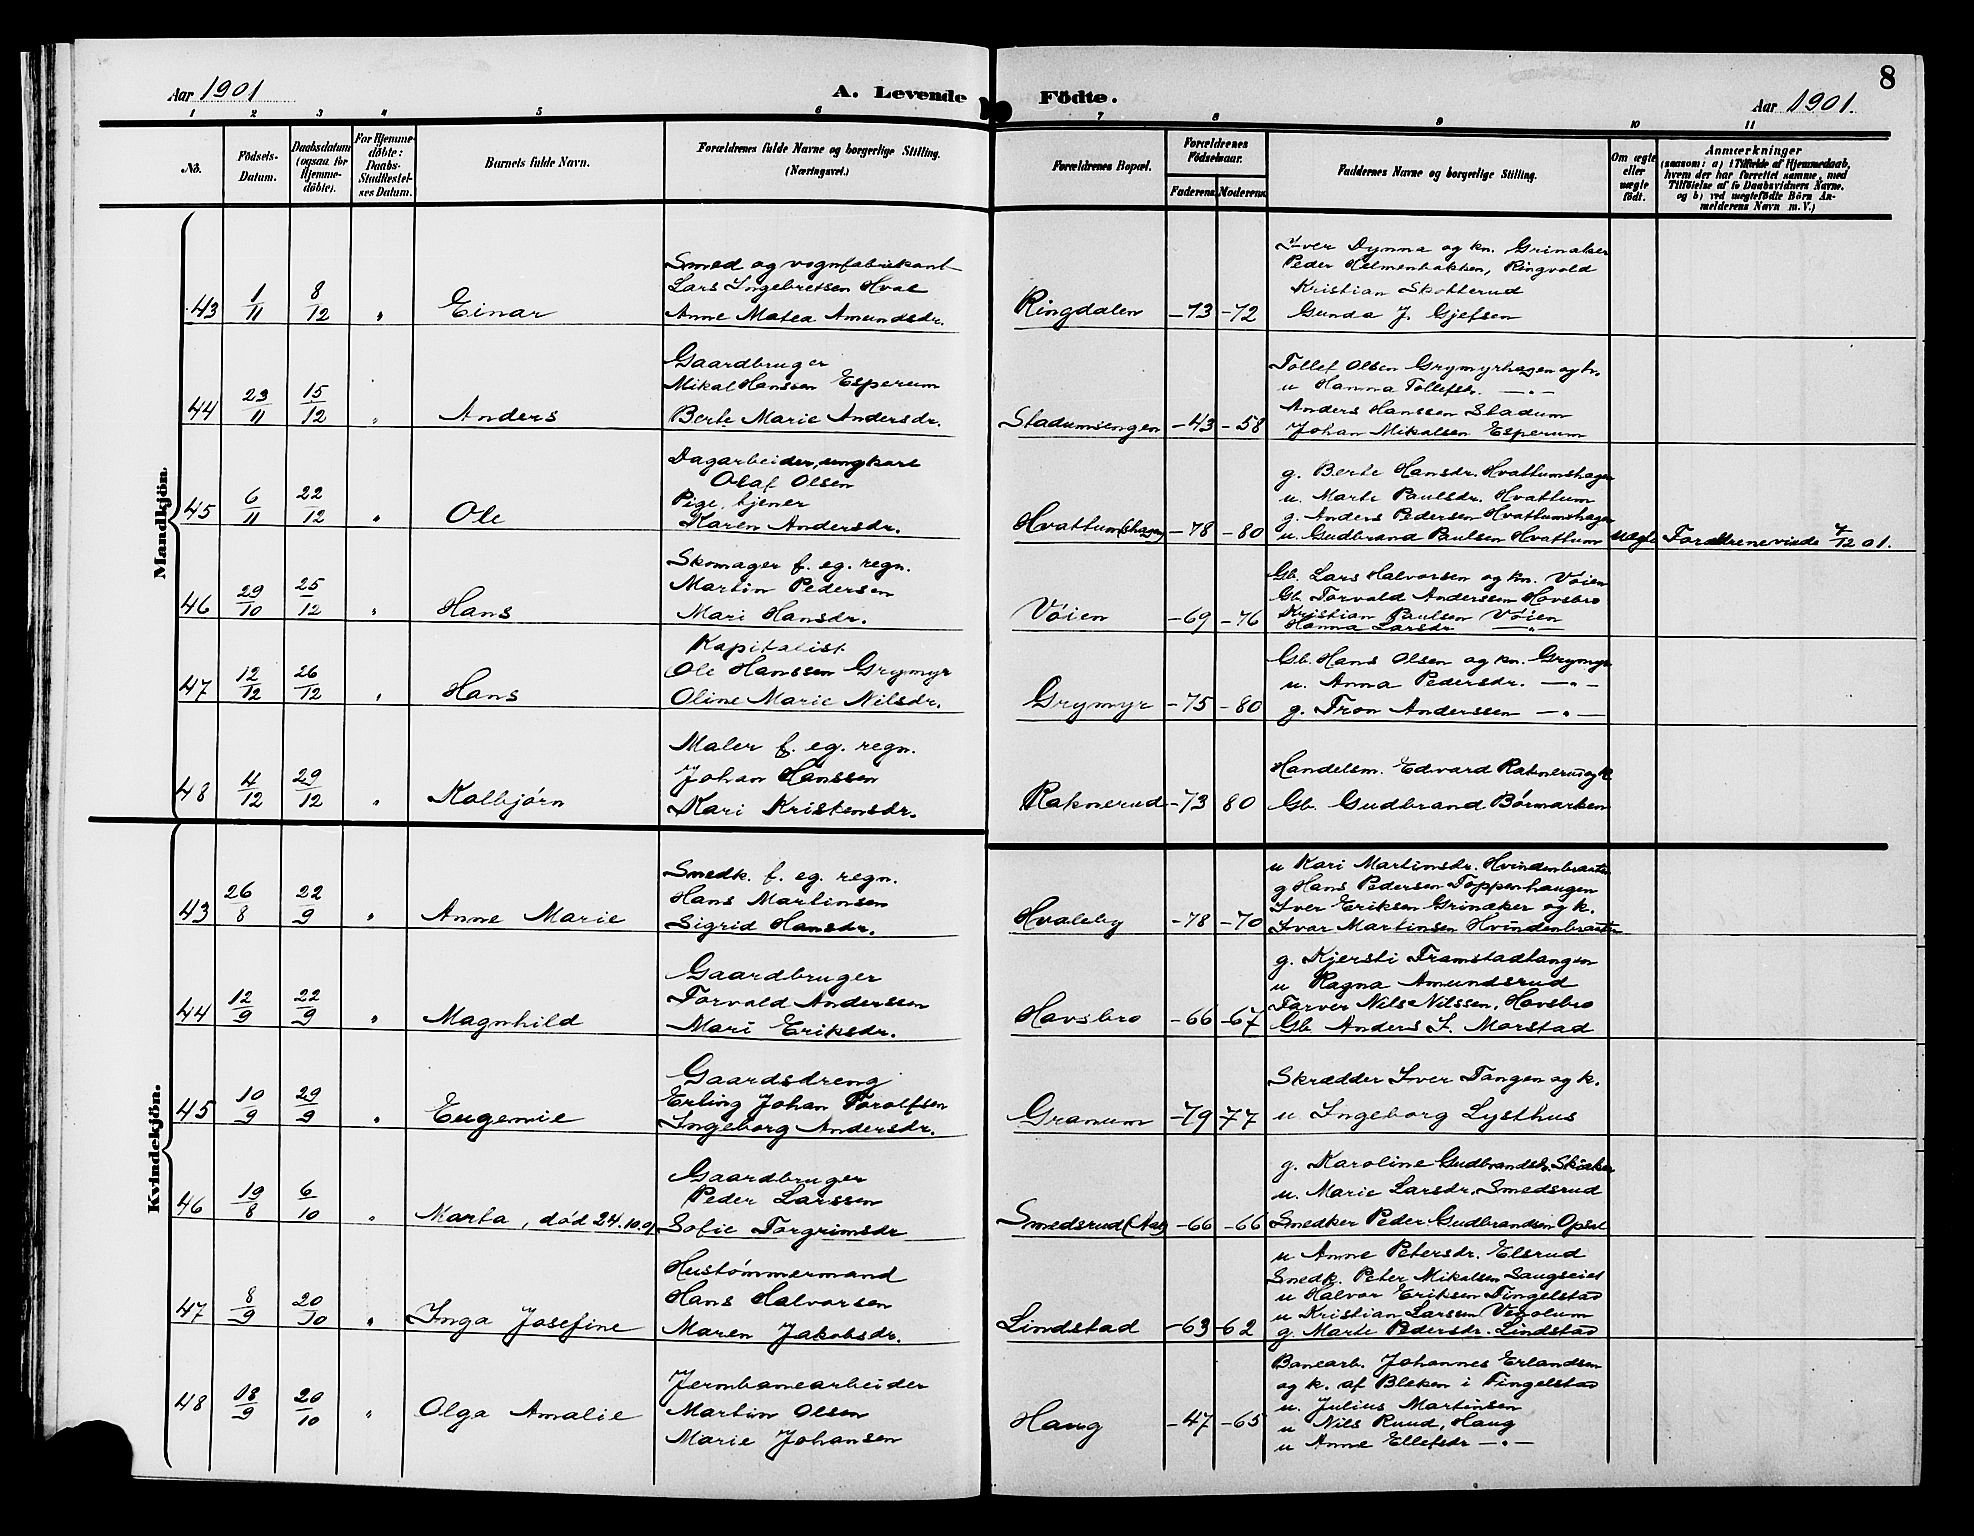 Aar 1901
A. Levende
Födte.
Aar 1901.
8
1 2 3 4 5 6 7 8 9 10 11
No.
Födsels-
Datum.
Daabsdatum
(ogsaa for
Hjemme-
döbte).
For Hjemme-
döbte:
Daabs-
Stadfæstel-
ses Datum.
Barnets fulde Navn.
Forældrenes fulde Navne og borgerlige Stilling.
(Næringsvei.)
Forældrenes Bopæl.
Forældrenes
Födselsaar.
Faderens Moderens
Faddernes Navne og borgerlige Stilling.
Om ægte
eller
uægte
födt.
Anmærkninger
(saasom: a) i Tilfælde af Hjemmedaab,
hvem der har forrettet samme, med
Tilföielse af to Daabsvidners Navne,
og b) ved uægtefödte Börn An-
melderens Navn m. V.)
Mandkjön.
43 1/11 8/12 " Einar
Smed og vognfabrikant
Lars Ingebretsen Hval
Anne Matea Amundsdr.
Ringdalen -73 -72
Iver Dynna og kn. Grinaker
Peder Helmenbakken, Ringvold
Kristian Skotterud
Gunda J. Gjefsen
44 23/11 15/12 " Anders
Gaardbruger
Mikal Hanssen Esperum
Berte Marie Andersdr.
Stadumsengen -43 -58
Tollef Olsen Grymyrhagen og k.
u Hanna Tollefsdr. — " —
Anders Hanssen Stadum
Johan Mikalsen Esperum
45 6/11 22/12 " Ole
Dagarbeider, ungkarl
Olaf Olsen
Pige, tjener
Karen Andersdr.
Hvattum(shagen) -78 -80
g. Berte Hansdr. Hvattumshagen
u. Marte Paulsdr. Hvattum
g. Anders Pedersen Hvattumshagen
u. Gudbrand Paulsen Hvattum
uægte Forældrene viede 7/12 01.
46 29/10 25/12 " Hans
Skomager f. eg. regn.
Martin Pedersen
Mari Hansdr.
Vöien -69 -76
Gb. Lars Halvorsen og kn. Vöien
Gb. Torvald Anderssen Hovsbro
Kristian Paulsen Vöien
Hanna Larsdr — " —
47 12/12 26/12 " Hans
Kapitalist
Ole Hanssen Grymyr
Oline Marie Nilsdr.
Grymyr -75 -80
Gb. Hans Olsen og kn. Grymyr
u. Anna Pedersdr. — " —
g. Tron Anderssen — " —
48 4/12 29/12 " Kolbjörn
Maler f. eg. regn.
Johan Hanssen
Kari Kristensdr.
Raknerud -73 80
Handelsm. Edvard Raknerud og k
Gb. Gudbrand Börmarken
Kvindekjön.
43 26/8 22/9 " Anne Marie
Snedk. f. eg. regn.
Hans Martinsen
Sigrid Hansdr.
Hvaleby -78 -70
u Kari Martinsdr. Hvindenbraaten
g Hans Pedersen Toppenhaugen
Iver Eriksen Grinaker og k.
Ivar Martinsen Hvindenbraaten
44 12/9 22/9 " Magnhild
Gaardbruger
Torvald Anderssen
Mari Eriksdr.
Hovsbro -66 -67
g. Kjersti Framstadtangen
u Ragna Amundsrud
Farver Nils Nilssen, Hovsbro
Gb Anders I. Morstad
45 10/9 29/9 " Eugenie
Gaardsdreng
Erling Johan Torolfsen
Ingeborg Andersdr.
Granum -79 -77
Skrædder Iver Tangen og k.
u Ingeborg Lysthus
46 19/8 6/10 " Marta, död 24.10.01
Gaardbruger
Peder Larssen
Sofie Torgrimsdr
Smedsrud -66 -66
g. Karoline Gudbrandsd. Skiaker
u. Marie Larsdr. Smedsrud
Snedker Peder Gudbrandsen Opsal
47 8/9 20/10 " Inga Josefine
Hustömmermand
Hans Halvorsen
Maren Jakobsdr.
Lindstad -63 -62
u Anne Petersdr. Elsrud
Snedk. Peter Mikalsen Saugseiet
u Halvor Eriksen Tingelstad
u Kristian Larssen Vegolum
g. Marte Pedersdr. Lindstad
48 13/9 20/10 " Olga Amalie
Jernbanearbeider
Martin Olsen
Marie Johansen
Haug -47 -65
Banearb. Johannes Erlandsen
og k. af Bleken i Tingelstad
u. Julius Martinsen
u Nils Ruud, Haug
u Anne Ellefsdr — " —